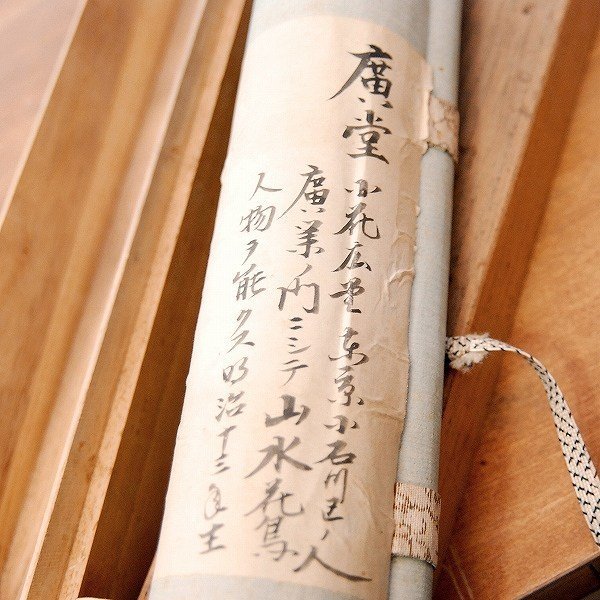 廣堂 小花広堂 東京小石川区ノ人
廣業ノ門ニシテ山水花鳥
人物ヲ能クス 明治十三年生